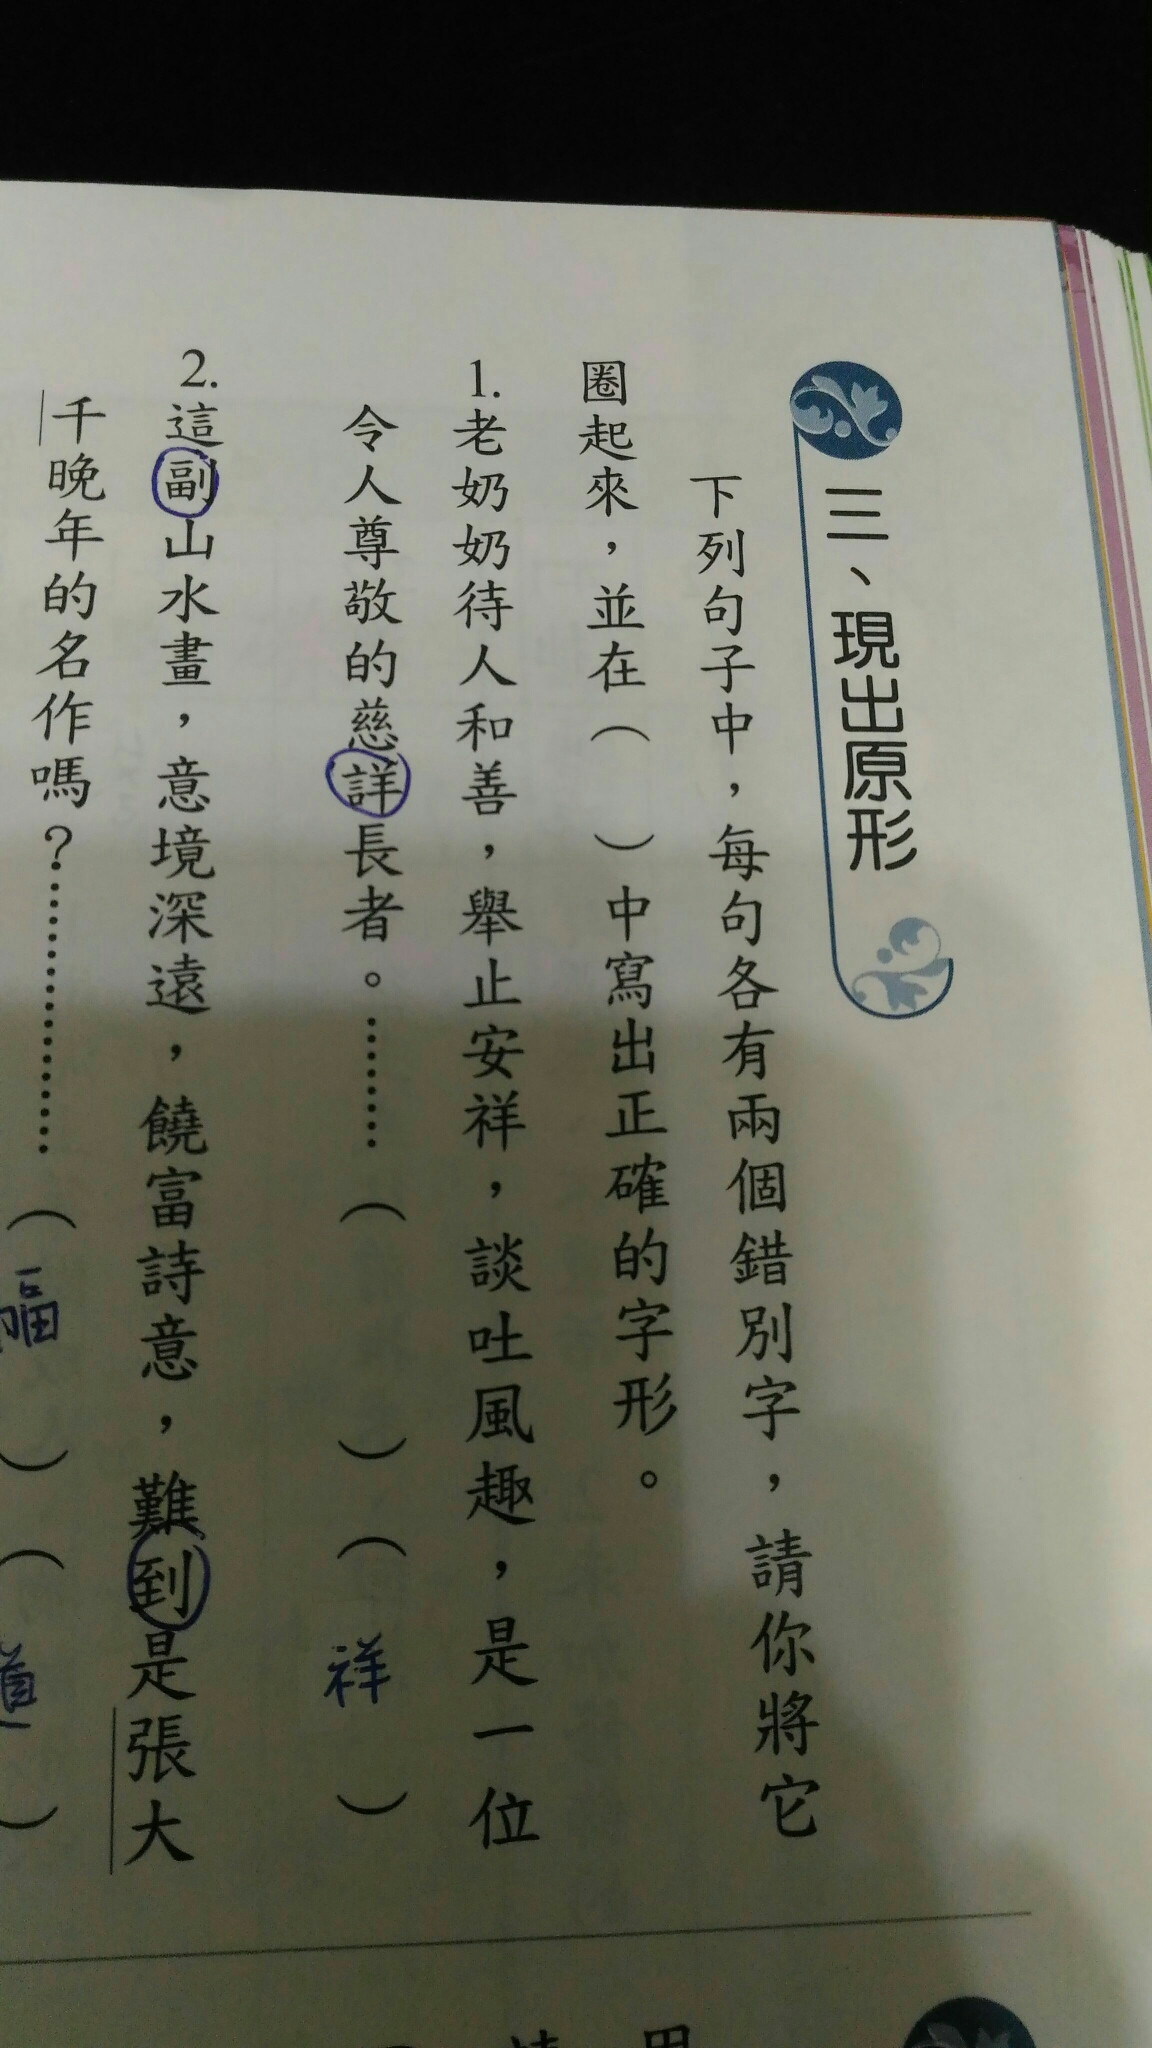 三、現出原形
下列句子中，每句各有兩個錯別字，請你將它
圈起來，並在（　）中寫出正確的字形。
1.老奶奶待人和善，舉止安祥，談吐風趣，是一位
令人尊敬的慈詳長者。……（　）（祥）
2.這副山水畫，意境深遠，饒富詩意，難到是張大
千晚年的名作嗎？………………（幅）（道）